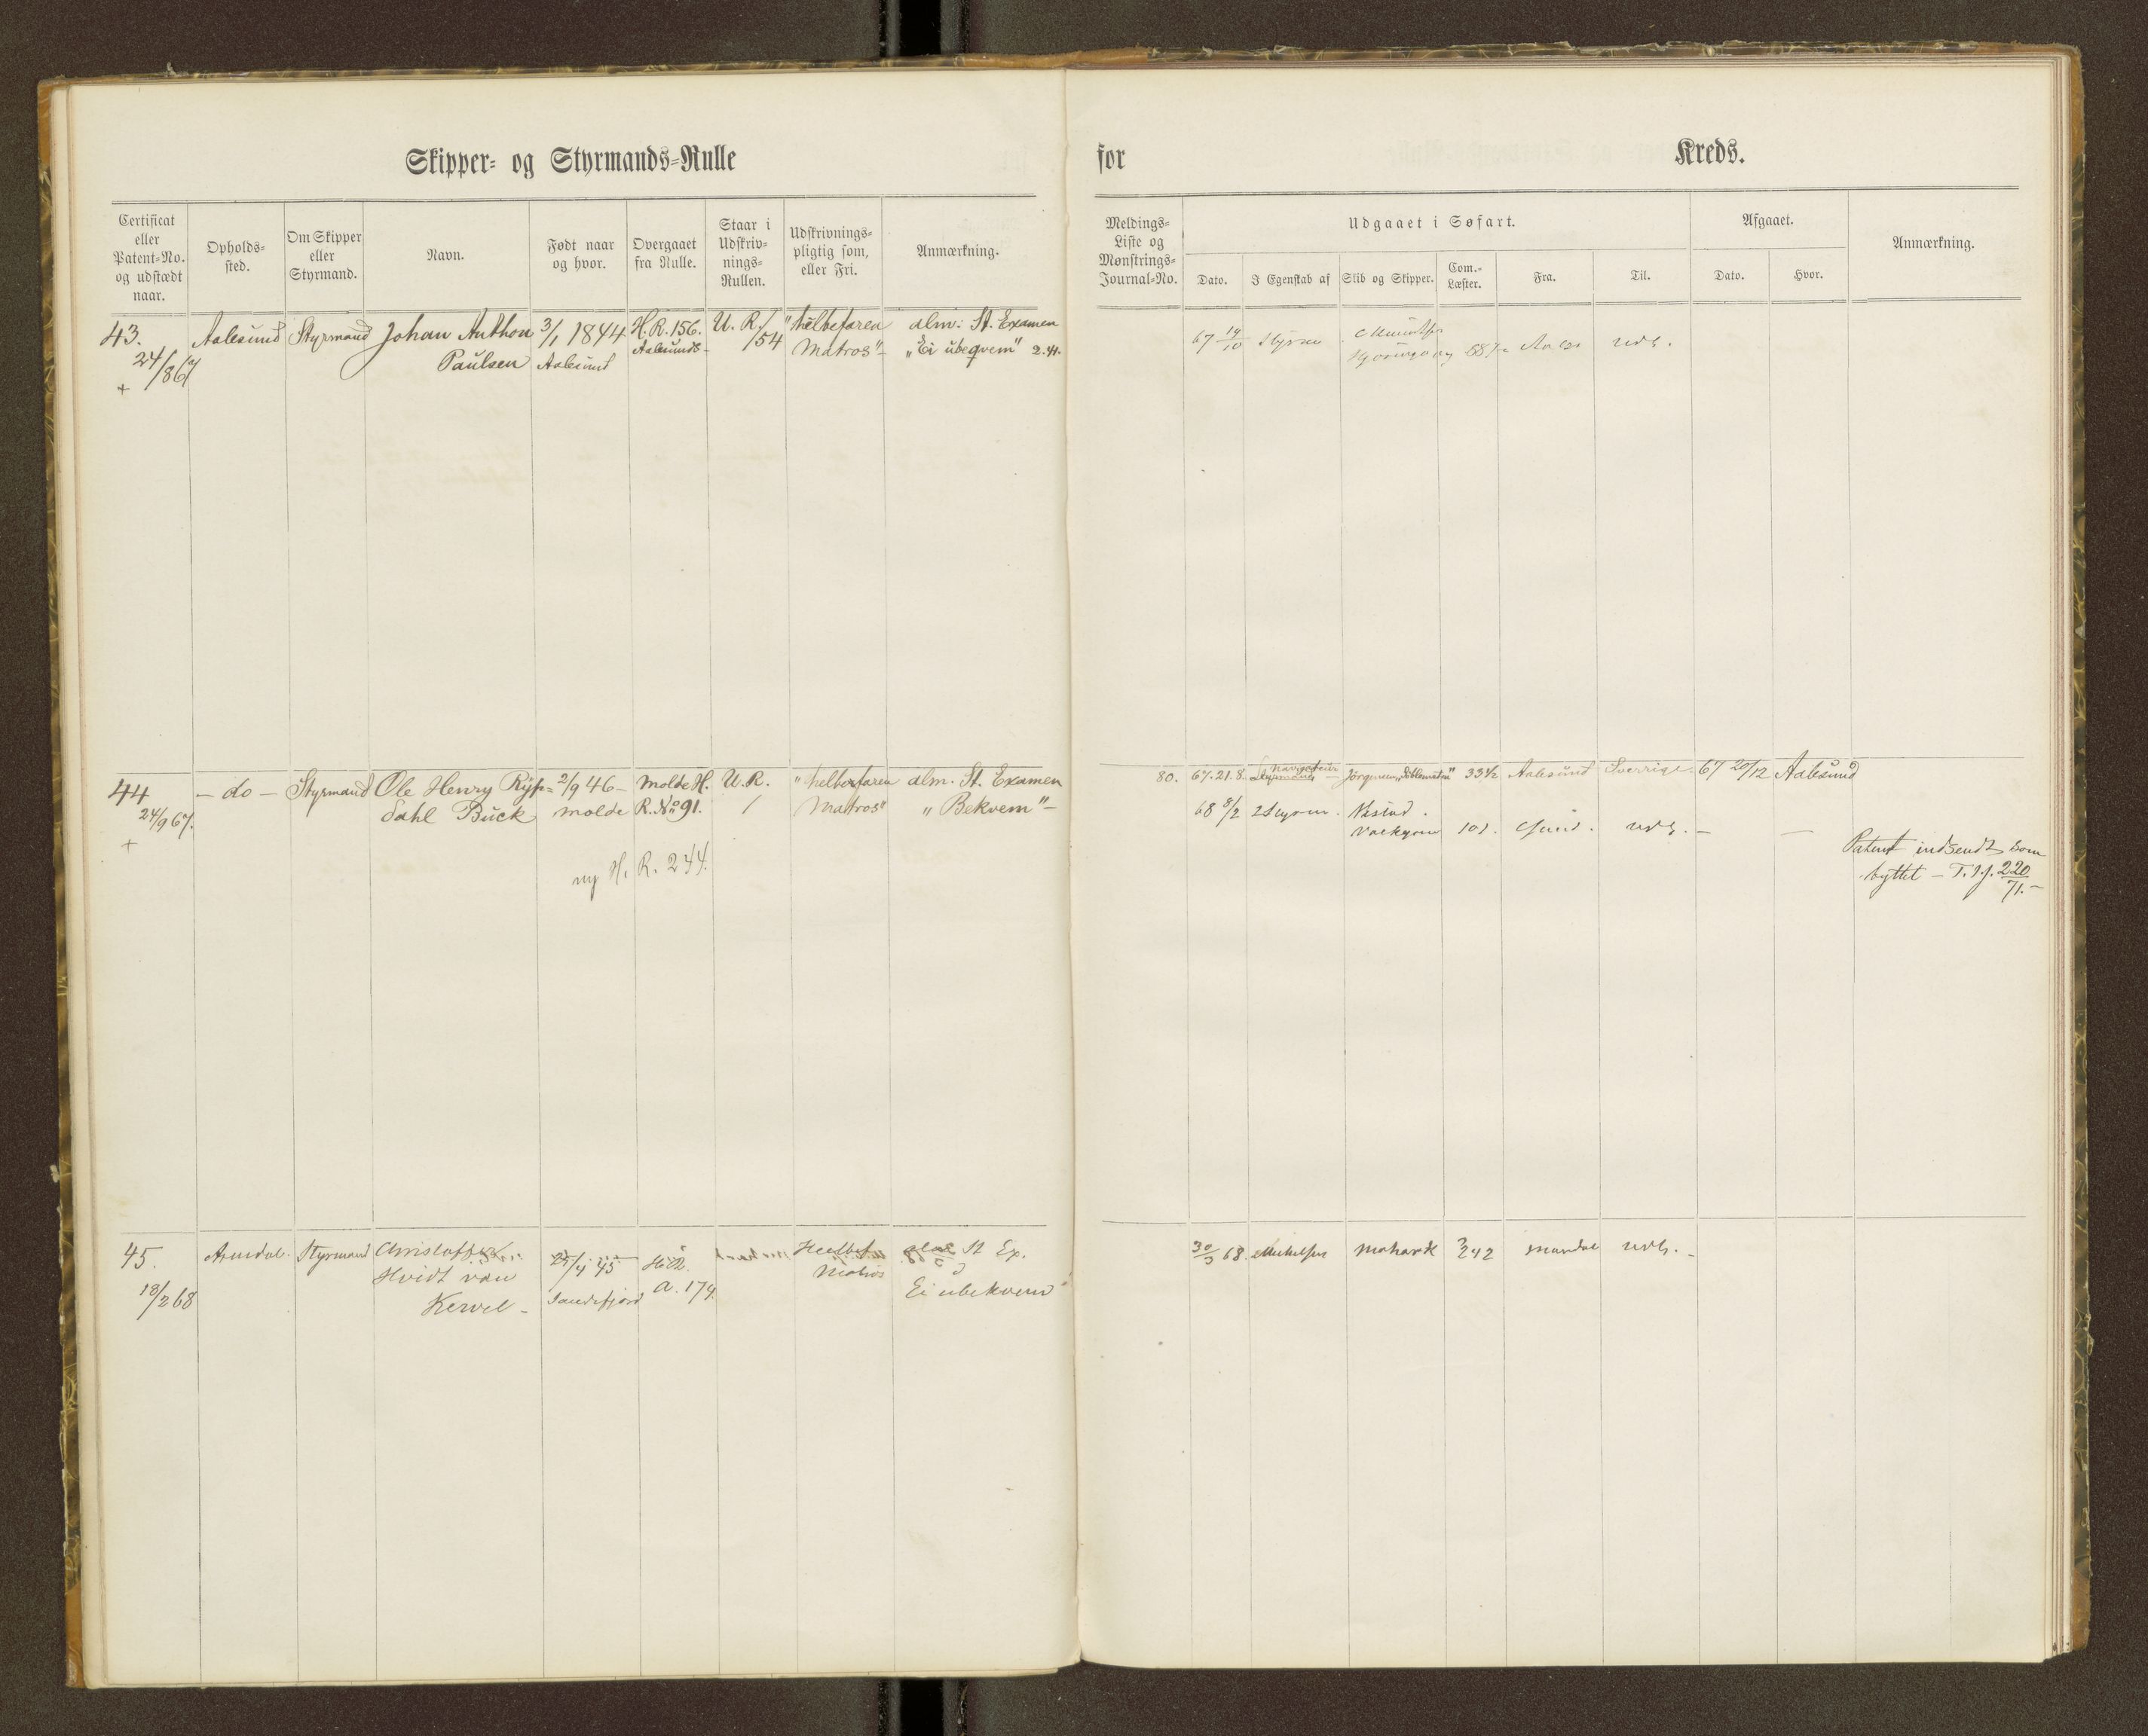 Skipper- og Styrmands-Rulle
for Kreds.
Certificat eller Patent-No. og udstædt naar.
Opholds-sted.
Om Skipper eller Styrmand.
Navn.
Født naar og hvor.
Overgaaet fra Rulle.
Staar i Udskriv-nings-Rullen.
Udskrivnings-pligtig som, eller Fri.
Anmærkning.
Meldings-Liste og Mønstrings-Journal-No.
Udgaaet i Søfart.
Dato.
I Egenskab af
Skib og Skipper.
Com.-Læster.
Fra.
Til.
Afgaaet.
Dato.
Hvor.
Anmærkning.
43. Aalesund Styrmand Johan Anthon 3/1 1844 H.R. 156. U.R./ "helbefaren alm: St. Examen
24/ Paulsen Aalesund Aalesunds- 154 Matros"- "Ei ubeqvem"
+
67 14/10 Styrm
44 - do - Styrmand Ole Henry Ryp= 2/9 46 - Molde H. U.R. "helbefaren alm. St. Examen
24/9 67. Dahl Buck Molde R. No 91. / Matros" "Bekvem"-
+
ny H. R. 244.
80. 67.21.8. Styrmand 33½ Aalesund Sverrige. 67 20/12 Aalesund
68 8/2 2 Styrm. 101. udl. - -
Patent indsendt som
byttet - T.I.J. 220/71.-
45. Arendal. Styrmand Christoffer 25/4 45 Heelbef. St Ex.
18/2 68 Hvidt van Matros
Kervel - Sandefjord A. 174. Ei ubekvem
30/3 68. Mohawk 242 Mandal udl. -